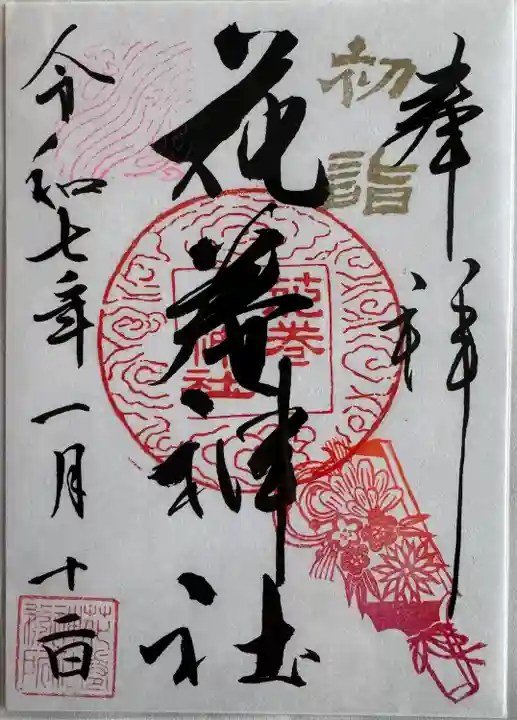 奉拝
初詣
花巻神社
花巻神社
令和七年一月十二日